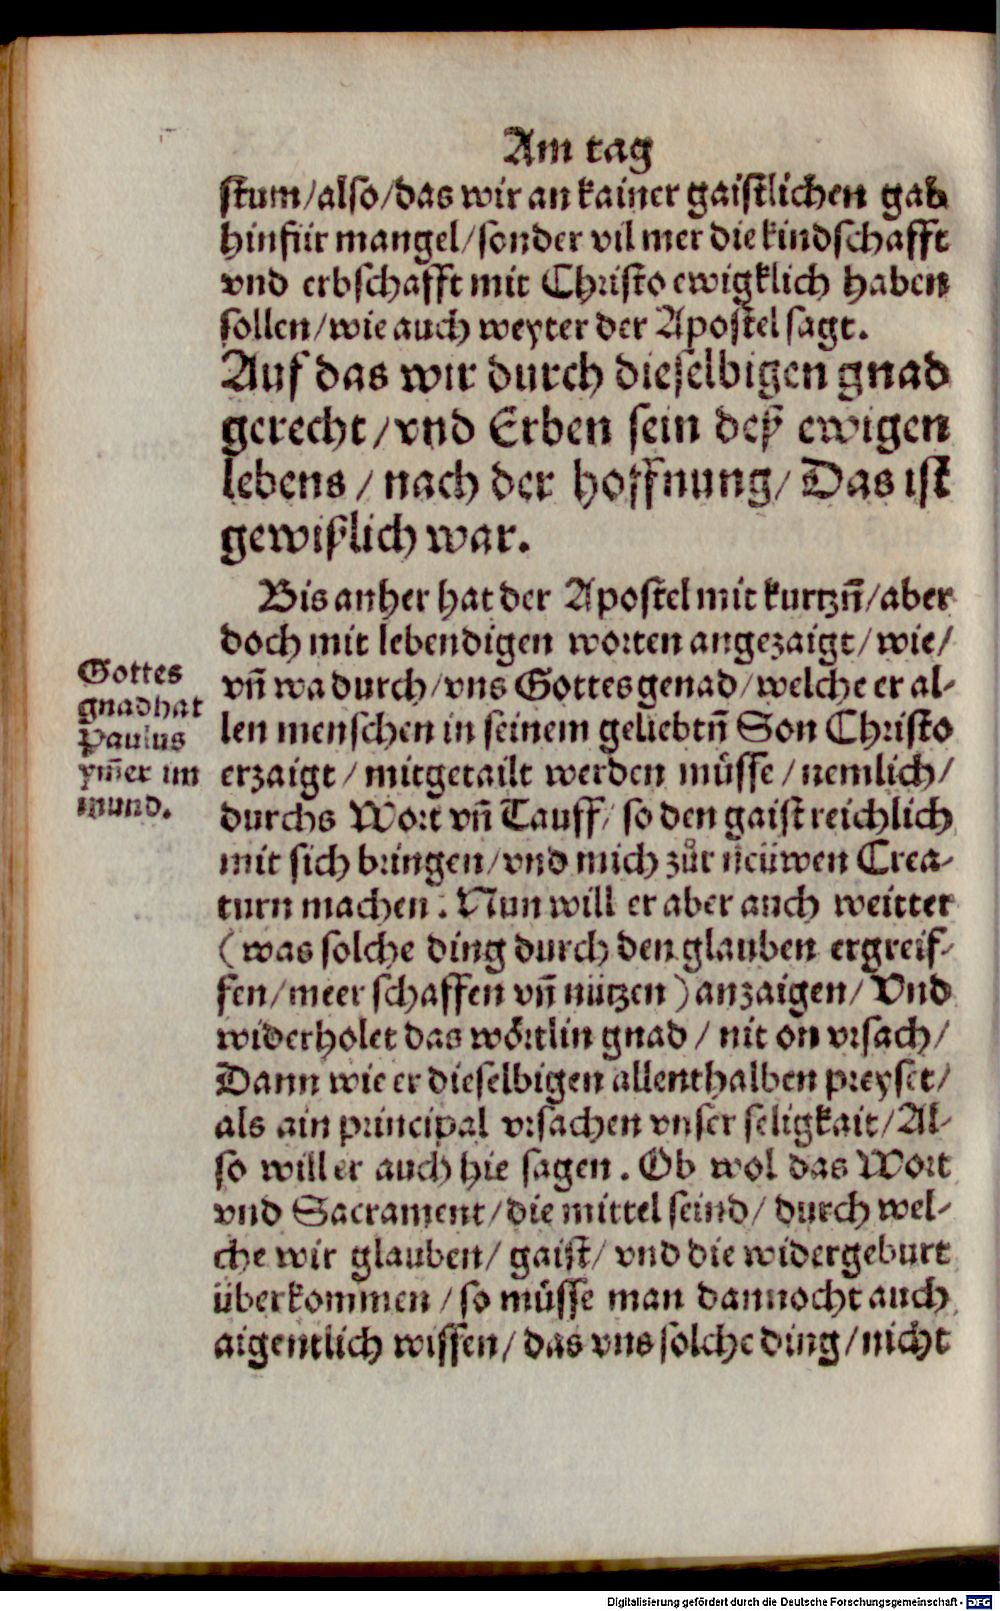 Am tag
stum/also/das wir an kainer gaistlichen gab
hinfür mangel/sonder vil mer die kindschafft
vnd erbschafft mit Christo ewigklich haben
sollen/wie auch weyter der Apostel sagt.
Auf das wir durch dieselbigen gnad
gerecht/vnd Erben sein deß ewigen
lebens/nach der hoffnung/Das ist
gewißlich war.
Bis anher hat der Apostel mit kurtzñ/aber
doch mit lebendigen worten angezaigt/wie/
vñ wa durch/vns Gottes genad/welche er al-
len menschen in seinem geliebtñ Son Christo
erzaigt/mitgetailt werden müsse/nemlich/
durchs Wort vñ Tauff/so den gaist reichlich
mit sich bringen/vnd mich zůr neüwen Crea-
turn machen. Nun will er aber auch weitter
(was solche ding durch den glauben ergreif-
fen/meer schaffen vñ nützen) anzaigen/Vnd
widerholet das wörtlin gnad/nit on vrsach/
Dann wie er dieselbigen allenthalben preyset/
als ain principal vrsachen vnser seligkait/Al-
so will er auch hie sagen. Ob wol das Wort
vnd Sacrament/die mittel seind/durch wel-
che wir glauben/gaist/vnd die widergeburt
überkommen/so müsse man dannocht auch
aigentlich wissen/das vns solche ding/nicht
Gottes
gnad hat
Paulus
ym̃er im
mund.
Digitalisierung gefördert durch die Deutsche Forschungsgemeinschaft - DFG